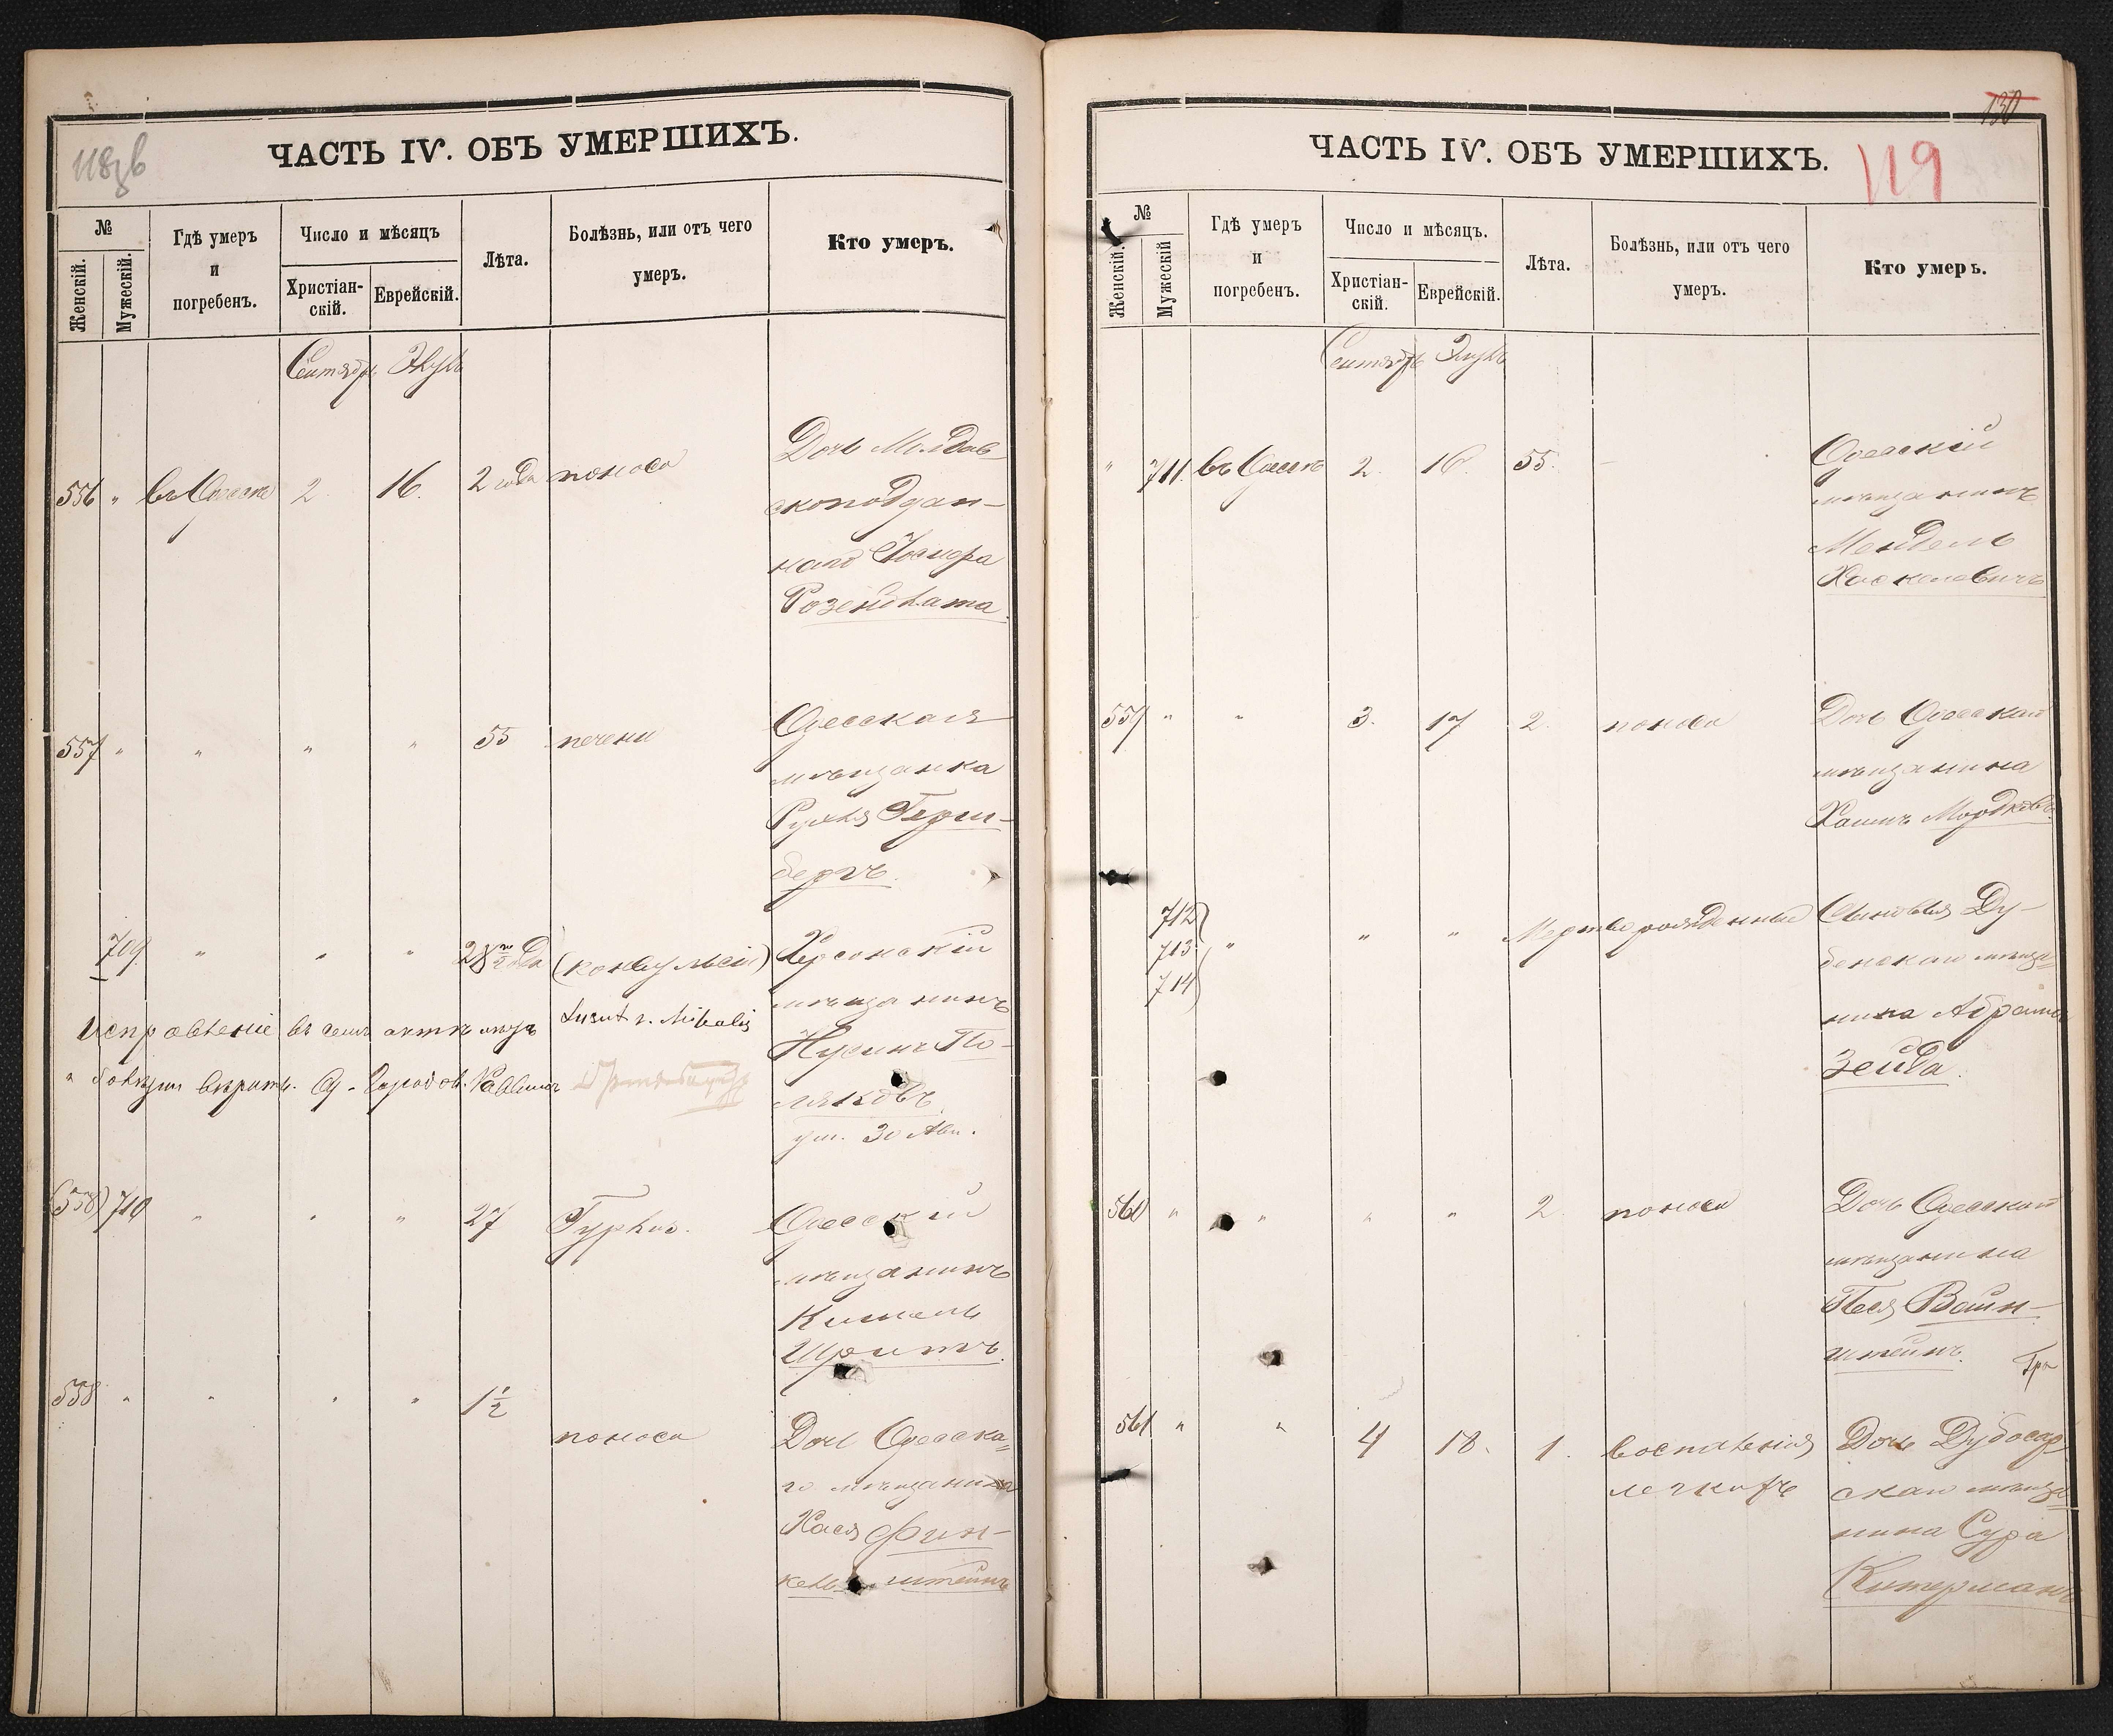 118зв
ЧАСТЬ IV. ОБЪ УМЕРШИХЪ.
№
Женскій.
Мужескій.
Гдѣ умеръ
и
погребенъ.
Число и мѣсяцъ
Христіан-
скій.
Еврейскій.
Лѣта.
Болѣзнь, или отъ чего
умеръ.
Кто умеръ.
Сентябрь Элулъ
556 " въ Одессѣ 2 16. 2 года поноса
Дочь Молдав-
скоподдан-
наго
Розенблата
557 " " " " 55 печени
Одесская
мѣщанка
Рухля Герш-
бергъ.
709 " " " (конвульсій)
Херсонскій
мѣщанинъ
Нусинъ По-
ляковъ
ум. 30 Авг.
Исправленіе въ семъ актѣ
болѣзни вѣрить. Од. Городов. Раввинъ
(558) 710 " " " 27
Одесскій
мѣщанинъ
Кисель
558 " " " " 1½ поноса
Дочь Одесска-
го мѣщанина
Хася Фин-
кель штейнъ
130
119
ЧАСТЬ IV. ОБЪ УМЕРШИХЪ.
№
Женскій.
Мужескій
Гдѣ умеръ
и
погребенъ.
Число и мѣсяцъ.
Христіан-
скій.
Еврейскій.
Лѣта.
Болѣзнь, или отъ чего
умеръ.
Кто умеръ.
Сентябрь Элулъ
" 711. въ Одессѣ 2. 16. 55. -
Одесскій
мѣщанинъ
Мендель
Хаскелевичъ
559 " " 3. 17 2. поноса
Дочь Одесскаго
мѣщанина
712
713 " " " Мертворожденные
714
Сыновья Ду-
бенскаго мѣща-
нина Абрама
Зейда.
560 " " " " 2 поноса
Дочь Одесскаго
мѣщанина
Песя Вайн-
штейнъ.
561 " " 4 18. 1. воспаленія
легкихъ
Дочь Дубосар-
скаго мѣща-
нина Сура
Китерманъ